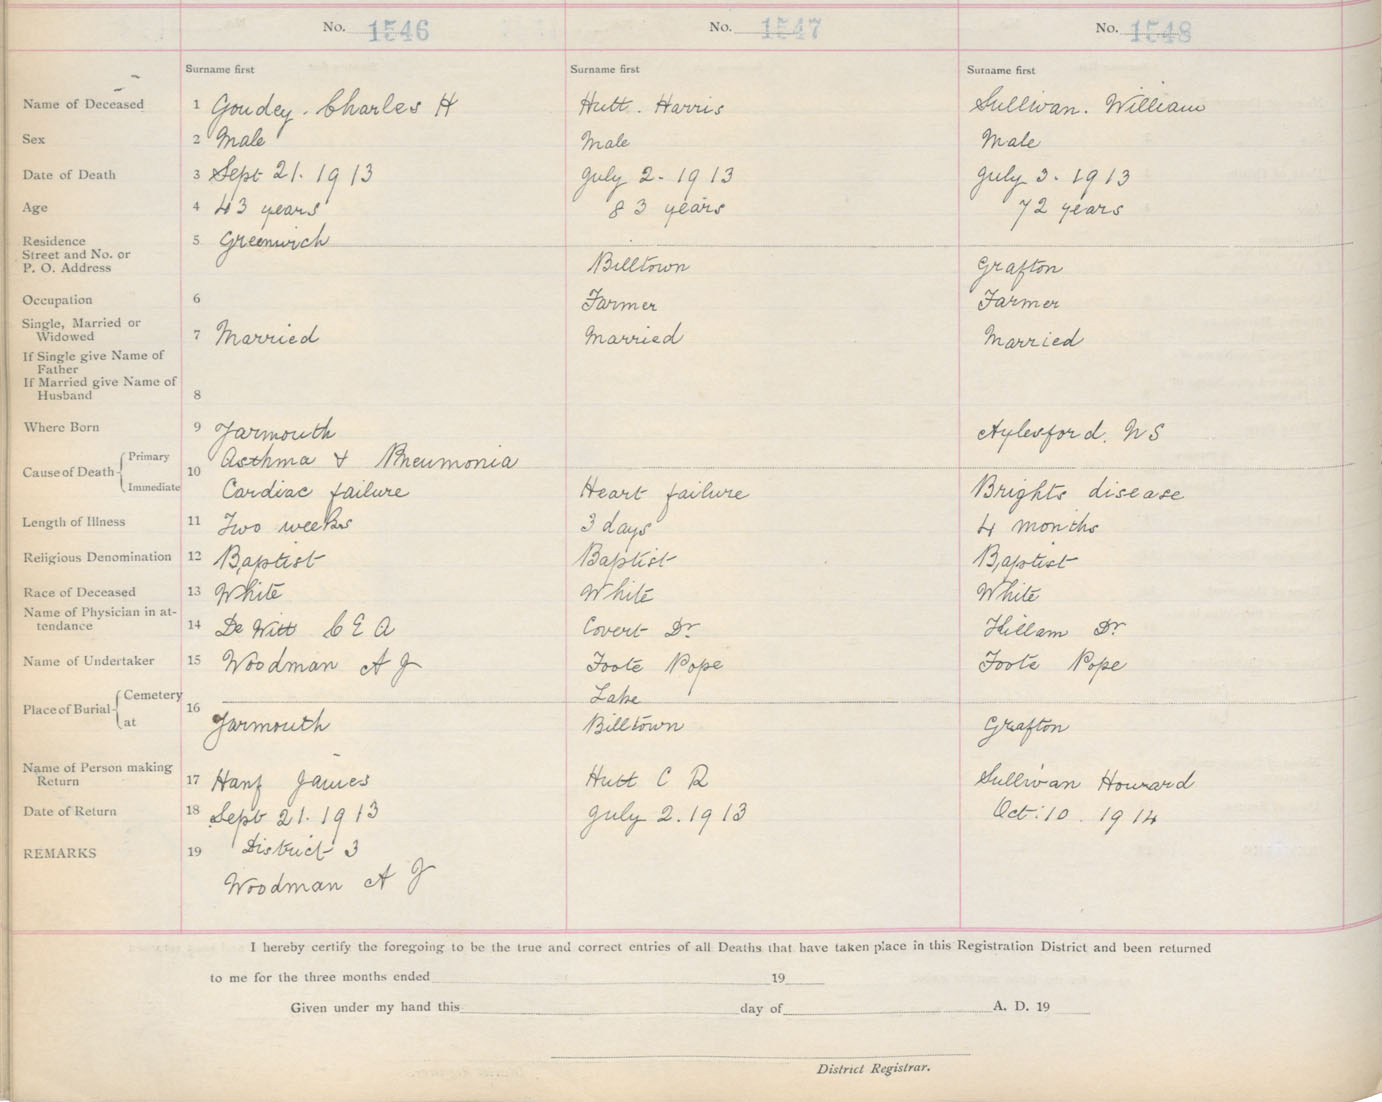 No. 1546 No. 1547 No. 1548
Surname first Surname first Surname first
Name of Deceased 1 Goudey. Charles H Hutt. Harris Sullivan. William
Sex 2 Male Male Male
Date of Death 3 Sept 21. 1913 July 2. 1913 July 3. 1913
Age 4 43 years 83 years 72 years
Residence 5 Greenwich
Street and No. or
P. O. Address Billtown Grafton
Occupation 6 Farmer Farmer
Single, Married or
Widowed 7 Married Married Married
If Single give Name of
Father
If Married give Name of
Husband 8
Where Born 9 Yarmouth Aylesford. NS
Primary Asthma & Pneumonia
Cause of Death 10
Immediate Cardiac failure Heart failure Brights disease
Length of Illness 11 Two weeks 3 days 4 months
Religious Denomination 12 Baptist Baptist Baptist
Race of Deceased 13 White White White
Name of Physician in at-
tendance 14 De Witt C E A Covert Dr Killam Dr
Name of Undertaker 15 Woodman A J Foote Pope Foote Pope
Cemetery Lake
Place of Burial 16
at Yarmouth Billtown Grafton
Name of Person making
Return 17 James Hutt C R Sullivan Howard
Date of Return 18 Sept 21. 1913 July 2. 1913 Oct. 10. 1914
REMARKS 19 District 3
Woodman A J
I hereby certify the foregoing to be the true and correct entries of all Deaths that have taken place in this Registration District and been returned
to me for the three months ended 19
Given under my hand this day of A. D. 19
District Registrar.